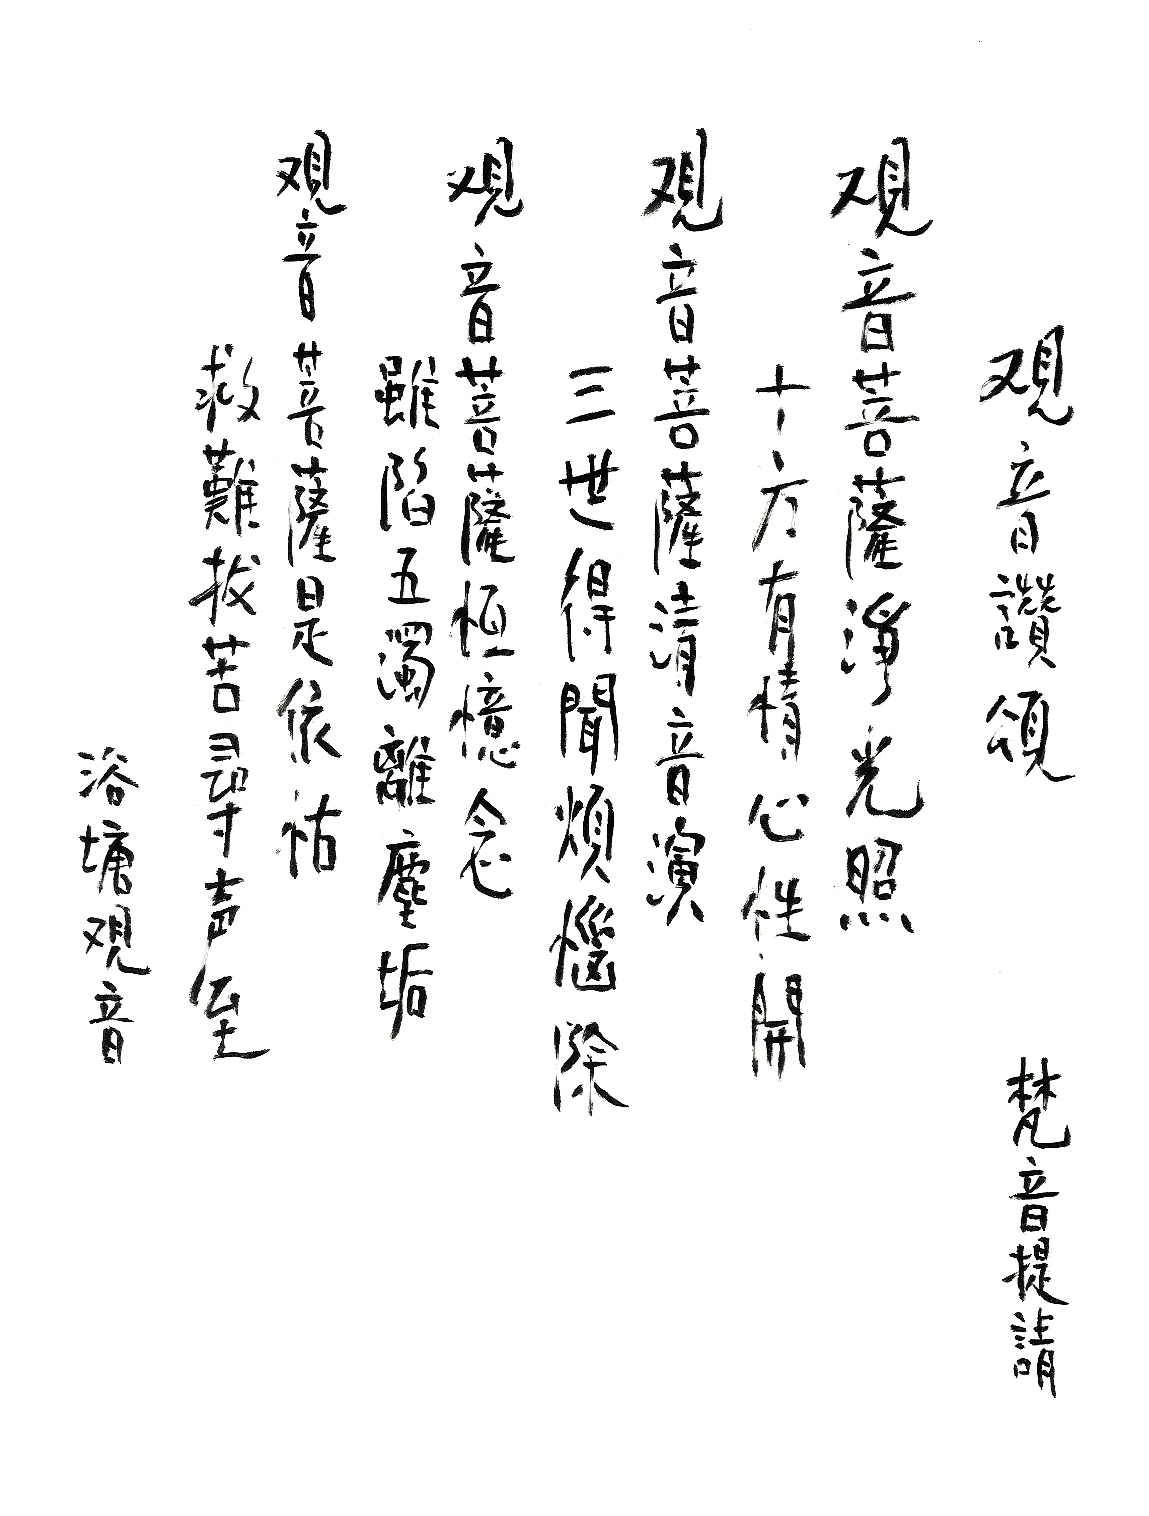 观音讚頌
梵音提請
观音菩薩淨光照
十方有情心性開
观音菩薩清音演
三世得聞煩惱除
观音菩薩恒憶念
雖陷五濁離塵垢
观音菩薩是依祜
救難拔苦尋声至
浴塘观音